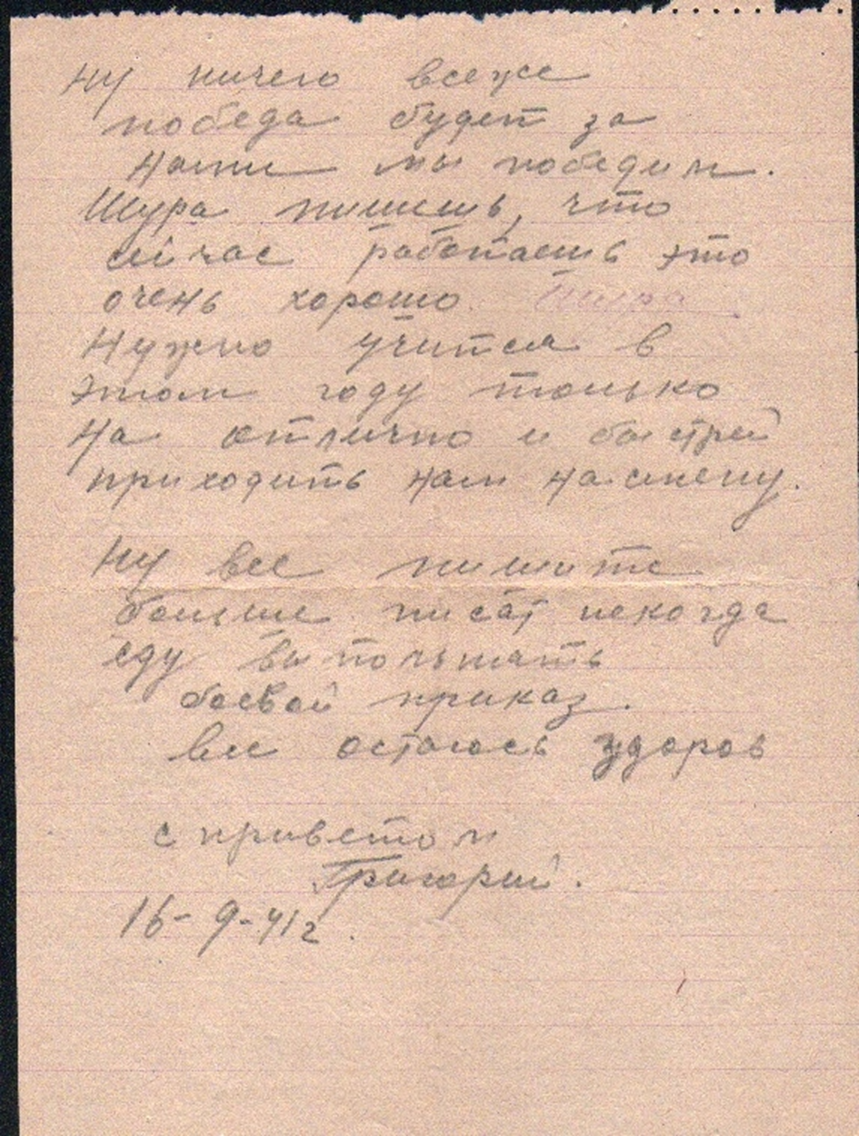 ну ничего всеже
победа будет за
нами мы победим.
Шура пишешь, что
сейчас работаешь это
очень хорошо Шура
Нужно учится в
этом году только
на отлично и быстрей
приходить нам на смену.
Ну все пишите
больше писат некогда
еду выполнять
боевой приказ.
все остаюсь здоров
с приветом
Григорий.
16-9-41г.